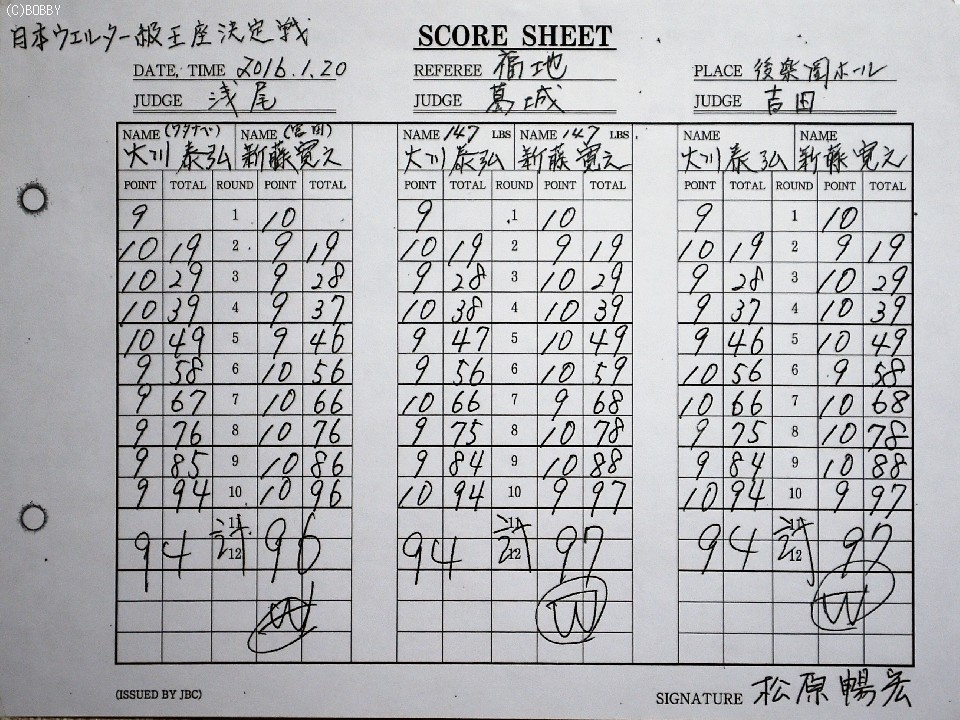 (C)BOBBY
日本ウエルター級王座決定戦
SCORE SHEET
DATE, TIME 2016.1.20 REFEREE 福地 PLACE 後楽園ホール
JUDGE 浅尾 JUDGE 葛城 JUDGE 吉田
NAME (ワタナベ) NAME (宮田) NAME 147 LBS NAME 147 LBS NAME NAME
大川泰弘 新藤寛之 大川泰弘 新藤寛之 大川泰弘 新藤寛之
POINT TOTAL ROUND POINT TOTAL POINT TOTAL ROUND POINT TOTAL POINT TOTAL ROUND POINT TOTAL
9 1 10 9 1 10 9 1 10
10 19 2 9 19 10 19 2 9 19 10 19 2 9 19
10 29 3 9 28 9 28 3 10 29 9 28 3 10 29
10 39 4 9 37 10 38 4 10 39 9 37 4 10 39
10 49 5 9 46 9 47 5 10 49 9 46 5 10 49
9 58 6 10 56 9 56 6 10 59 10 56 6 9 58
9 67 7 10 66 10 66 7 9 68 10 66 7 10 68
9 76 8 10 76 9 75 8 10 78 9 75 8 10 78
9 85 9 10 86 9 84 9 10 88 9 84 9 10 88
9 94 10 10 96 10 94 10 9 97 10 94 10 9 97
11 11 11
94 計 96 94 計 97 94 計 97
12 12 12
W W W
(ISSUED BY JBC) SIGNATURE 松原暢宏